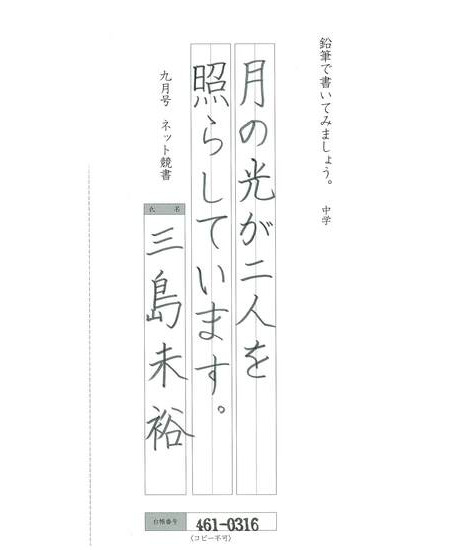 鉛筆で書いてみましょう。 中学
月の光が二人を
照らしています。
九月号 ネット競書
氏名
三島未裕
台帳番号 461-0316
(コピー不可)